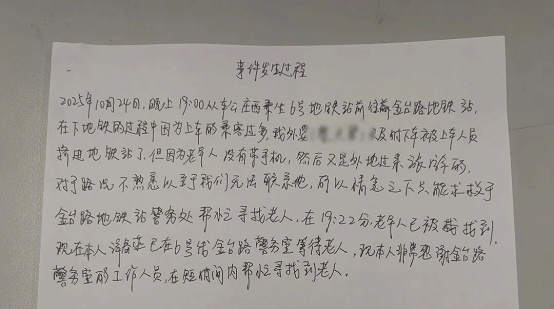 事件发生过程
2025年10月24日，晚上19:00从车公庄西乘坐6号地铁站前往金台路地铁站，
在下地铁的过程中因为上车的乘客过多，我外婆 未及时下车被上车人员
挤进地铁站了，但因为老年人没有带手机，然后又是外地过来旅游的，
对于路况不熟悉以至于我们无法联系他，所以情急之下只能求救于
金台路地铁站警务处帮忙寻找老人，在19:22分，老年人已被找到，
现在本人 已在6号线金台路警务室等待老人，现本人非常感谢金台路
警务室的工作人员，在短时间内帮忙寻找到老人。